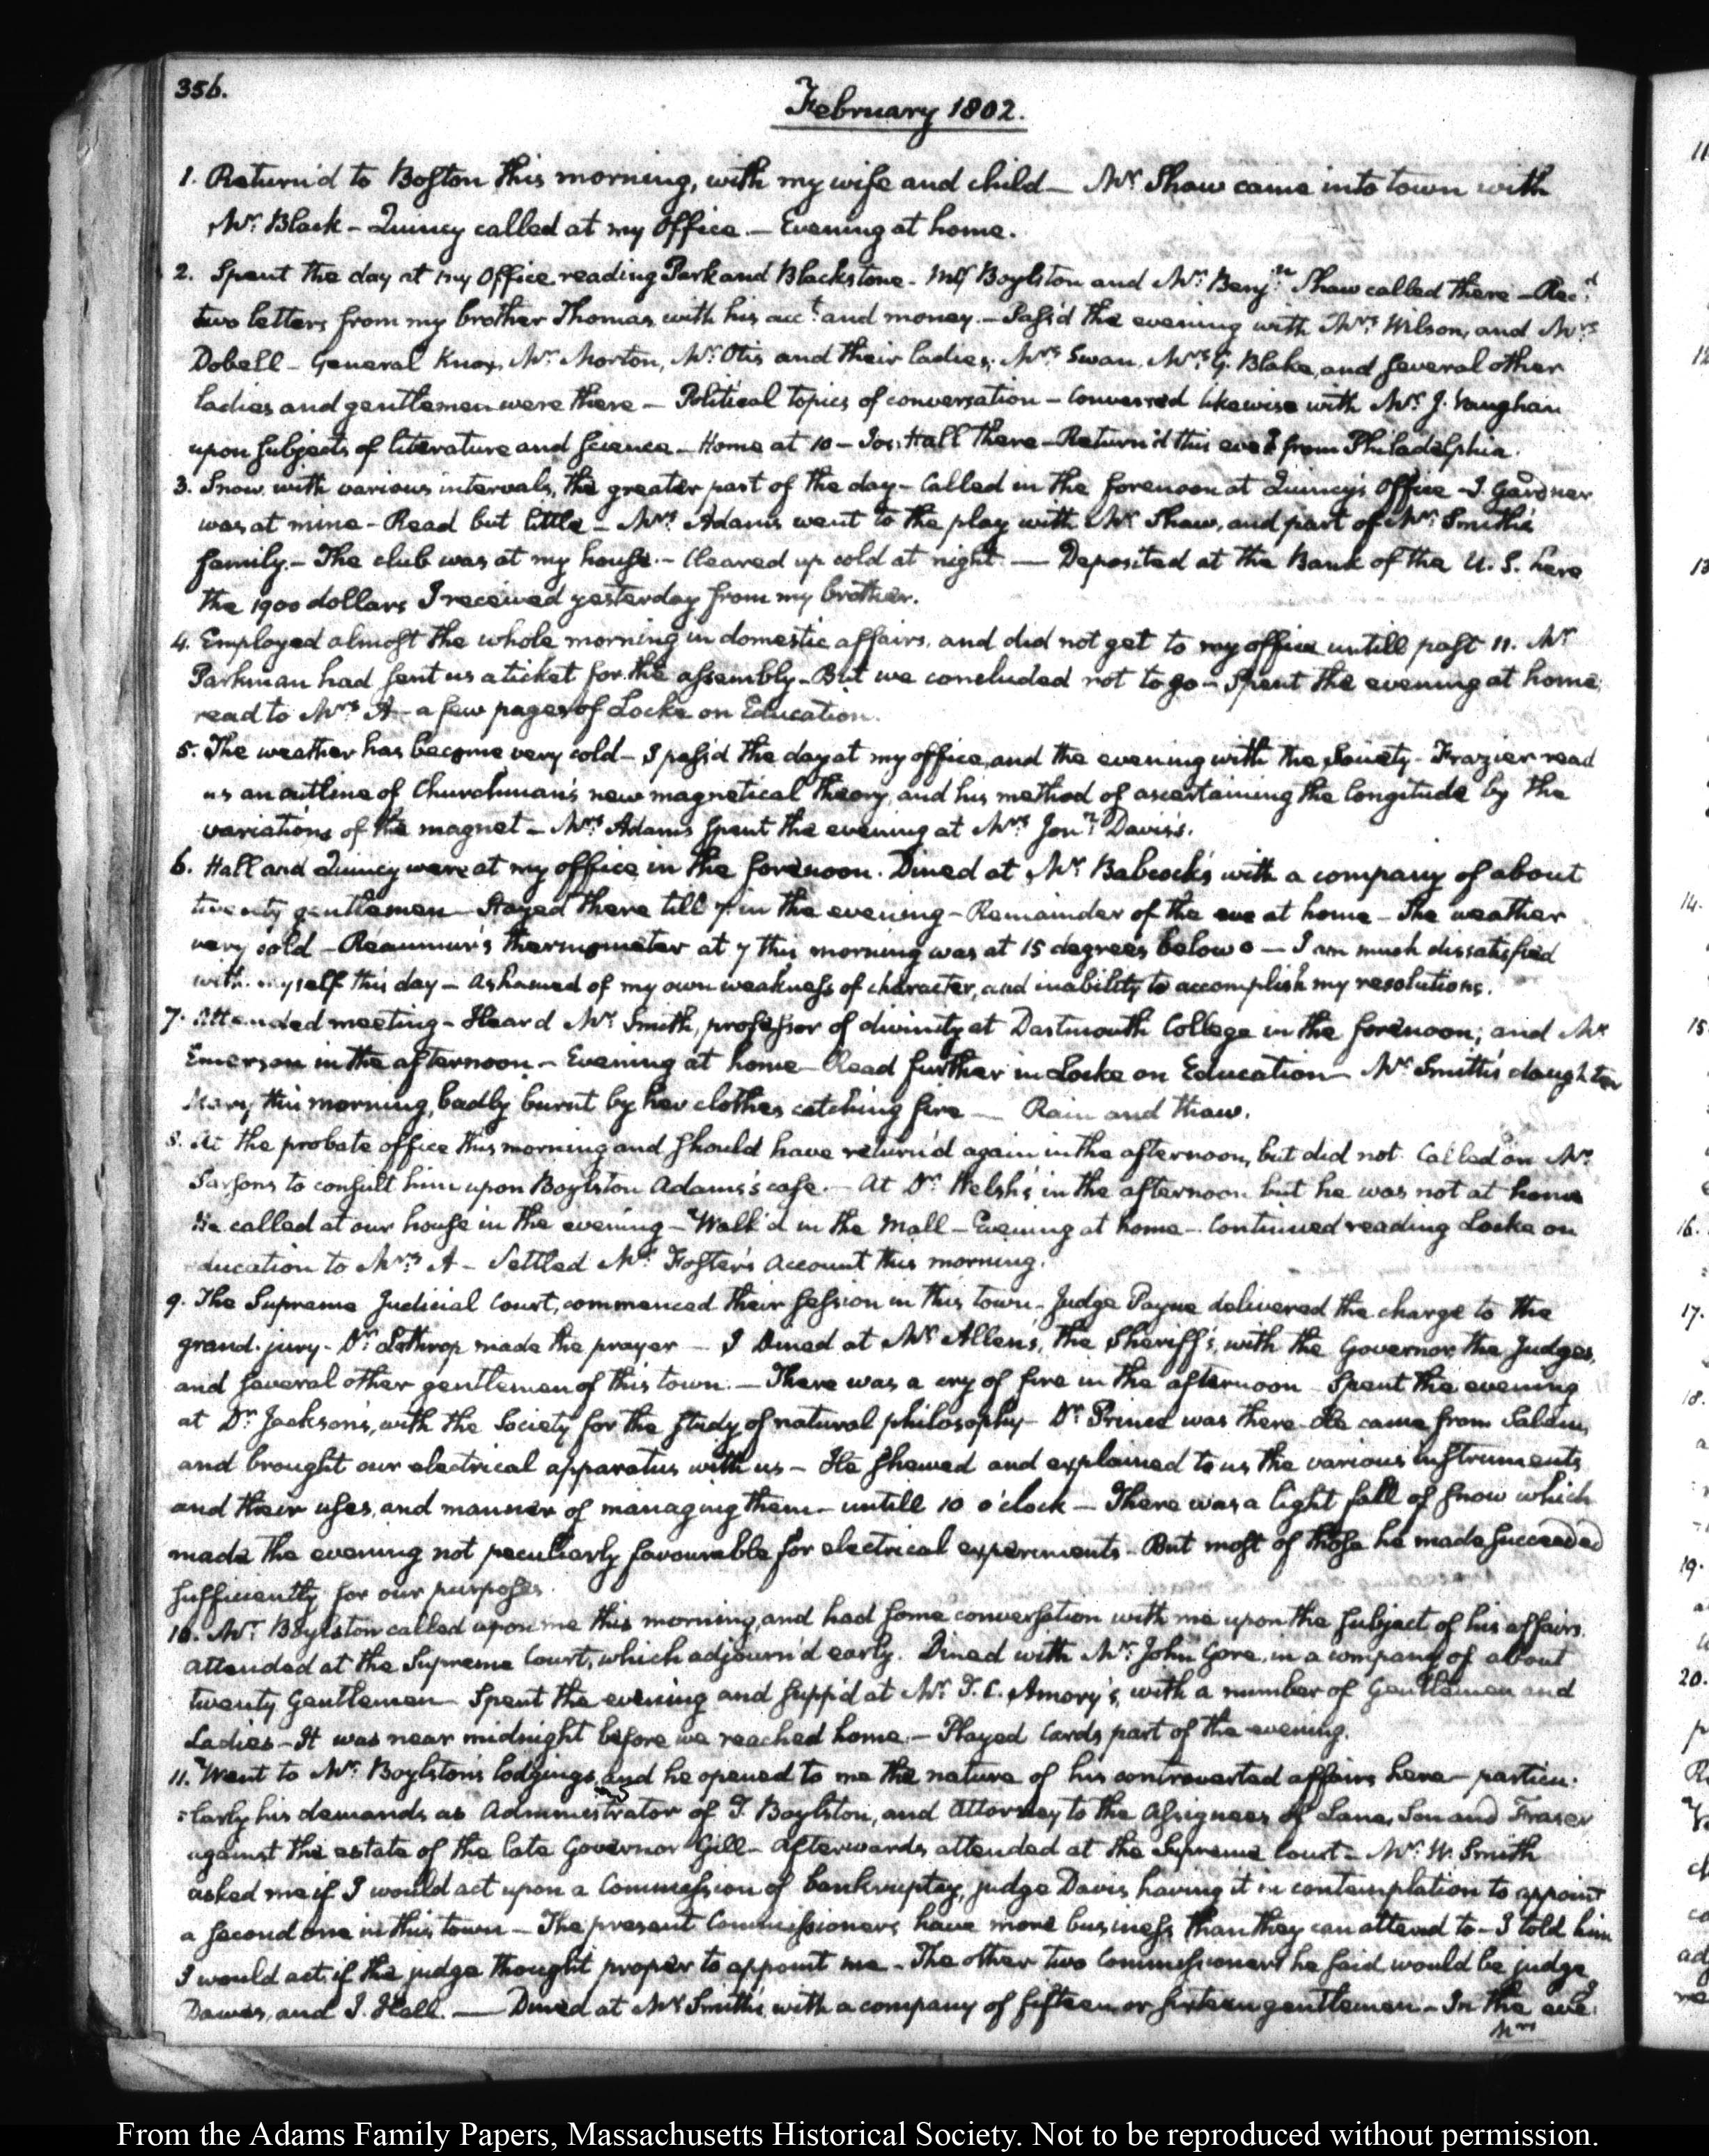 356.
February 1802.
1. Return'd to Boston this morning, with my wife and child — Mr. Shaw came into town with
Mr. Black — Quincy called at my Office. — Evening at home.
2. Spent the day at my Office reading Park and Blackstone. Mr Boylston and Mr. Benjn. Shaw called there — Recd.
two letters from my brother Thomas, with his acct. and money. — Pass'd the evening with Mrs. Wilson, and Mrs.
Dobell — General Knox, Mr. Morton, Mr. Otis and their ladies, Mrs. Swan, Mrs. G. Blake, and several other
ladies and gentlemen were there — Political topics of conversation — Conversed likewise with Mr. J. Vaughan
upon subjects of literature and science — Home at 10 — Jos: Hall there — Return'd this eveg. from Philadelphia.
3. Snow with various intervals, the greater part of the day — Called in the forenoon at Quincy's Office — J. Gardner
was at mine — Read but little — Mrs. Adams went to the play with Mr. Shaw, and part of Mr. Smith's
family. — The club was at my house. — Cleared up cold at night — Deposited at the Bank of the U. S. here
the 1900 dollars I received yesterday from my brother.
4. Employed almost the whole morning in domestic affairs, and did not get to my office untill past 11. Mr
Parkman had sent us a ticket for the assembly — But we concluded not to go — Spent the evening at home;
read to Mrs. A — a few pages of Locke on Education.
5. The weather has become very cold — I pass'd the day at my office, and the evening with the Society — Frazier read
us an outline of Churchman's new magnetical theory, and his method of ascertaining the longitude by the
variations of the magnet — Mrs. Adams spent the evening at Mrs. Jonn. Davis's.
6. Hall and Quincy were at my office in the forenoon. Dined at Mr. Babcock's with a company of about
twenty gentlemen — Stayed there till 7 in the evening — Remainder of the eve at home — The weather
very cold — Reaumur's thermometer at 7 this morning was at 15 degrees below 0 — I am much dissatisfied
with myself this day — Ashamed of my own weakness of character, and inability to accomplish my resolutions.
7. Attended meeting — Heard Mr. Smith, professor of divinity at Dartmouth College in the forenoon; and Mr
Emerson in the afternoon — Evening at home — Read further in Locke on Education — Mr. Smith's daughter
Mary this morning, badly burnt by her clothes catching fire — Rain and thaw.
8. At the probate office this morning and should have return'd again in the afternoon, but did not. Called on Mr.
Parsons to consult him upon Boylston Adams's case. — At Dr. Welsh's in the afternoon but he was not at home
He called at our house in the evening — Walk'd in the Mall — Evening at home — Continued reading Locke on
education to Mrs. A — Settled Mr. Foster's account this morning.
9. The Supreme Judicial Court, commenced their session in this town — Judge Payne delivered the charge to the
grand-jury — Dr. Lathrop made the prayer — I dined at Mr. Allen's, the Sheriff's, with the Governor, the Judges,
and several other gentlemen of this town. — There was a cry of fire in the afternoon — Spent the evening
at Dr. Jackson's, with the Society for the study of natural philosophy — Dr. Prince was there — He came from Salem,
and brought our electrical apparatus with us — He shewed and explained to us the various instruments
and their uses, and manner of managing them — untill 10 o'clock — There was a light fall of snow which
made the evening not peculiarly favourable for electrical experiments — But most of those he made succeeded
sufficiently for our purposes.
10. Mr. Boylston called upon me this morning, and had some conversation with me upon the subject of his affairs.
Attended at the Supreme Court, which adjourn'd early. Dined with Mr. John Gore, in a company of about
twenty Gentlemen — Spent the evening and supp'd at Mr. T. C. Amory's, with a number of Gentlemen and
Ladies — It was near midnight before we reached home. — Played Cards part of the evening.
11. Went to Mr. Boylston's lodgings, and he opened to me the nature of his controverted affairs here — particu-
=larly his demands as Administrator of T. Boylston, and Attorney to the Assignees of Lane, Son and Fraser
against the estate of the late Governor Gill — Afterwards attended at the Supreme Court — Mr. W. Smith
asked me if I would act upon a Commission of bankruptcy, judge Davis having it in contemplation to appoint
a second one in this town — The present Commissioners have more business than they can attend to — I told him
I would act, if the judge thought proper to appoint me — The other two Commissioners he said would be judge
Dawes, and J. Hall. — Dined at Mr. Smith's with a company of fifteen or sixteen gentlemen — In the eveg.
Mrs
11
12
13
14.
15
16.
17.
18.
19.
20.
From the Adams Family Papers, Massachusetts Historical Society. Not to be reproduced without permission.